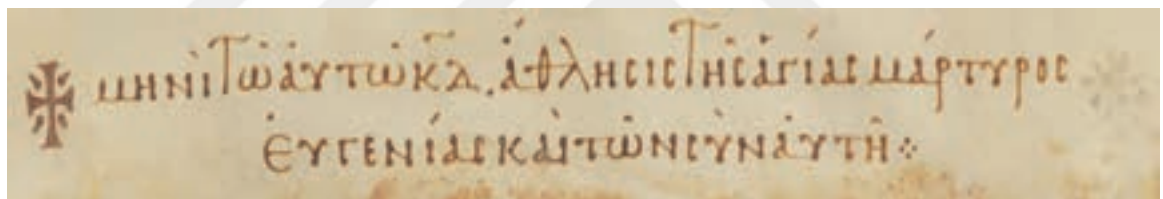 μηνὶ τῶ αὐτῶ κδ. ἄθλησις τῆς ἁγίας μάρτυρος
Εὐγενίας καὶ τῶν σὺν αὐτῆ